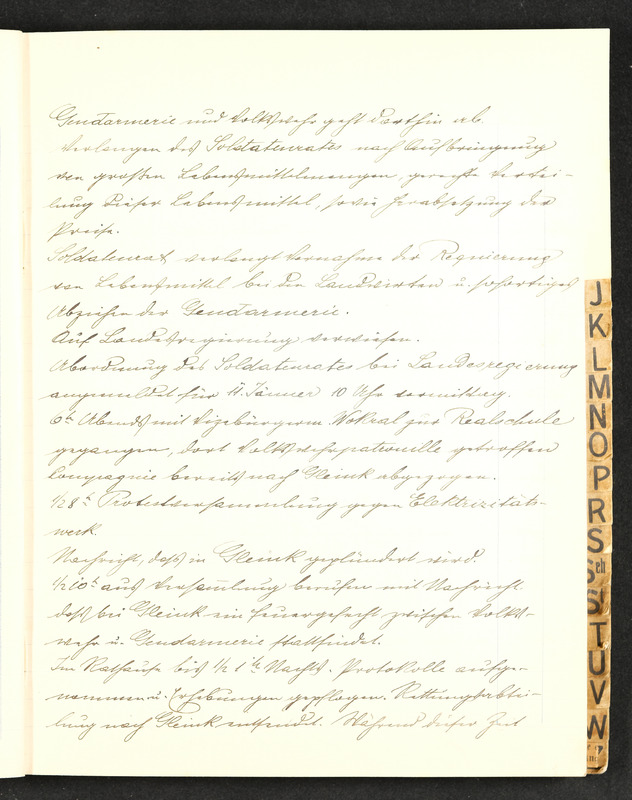 Gendarmerie und Volkswehr geht dorthin ab.
Verlangen des Soldatenrates nach Aufbringung
von großen Lebensmittelmengen, gerechte Vertei-
lung dieser Lebensmittel, sowie Herabsetzung der
Preise.
Soldatenrat verlangt Vornahme der Requirierung
von Lebensmittel bei den Landwirten u. sofortiges
Abziehen der Gendarmerie.
Auf Landesregierung verwiesen.
Abordnung des Soldatenrates bei Landesregierung
angemeldet für 11. Jänner 10 Uhr vormittag.
6h Abends mit Vizebürgerm. Wokral zur Realschule
gegangen, dort Volkswehrpatrouille getroffen
Compagnie bereits nach Gleink abgezogen.
1/2 8h Protestversammlung gegen Elektrizitäts-
werk.
Nachricht, daß in Gleink geplündert wird.
1/2 10h aus Versammlung berufen mit Nachricht
daß bei Gleink ein Feuergefecht zwischen Volks-
wehr u. Gendarmerie stattfindet.
Im Rathause bis 1/2 1h Nachts. Protokolle aufge-
nommen u. Erhebungen gepflogen. Rettungsabtei-
lung nach Gleink entsendet. Während dieser Zeit
J
K
L
M
N
O
P
R
S
Sch
St
T
U
V
W